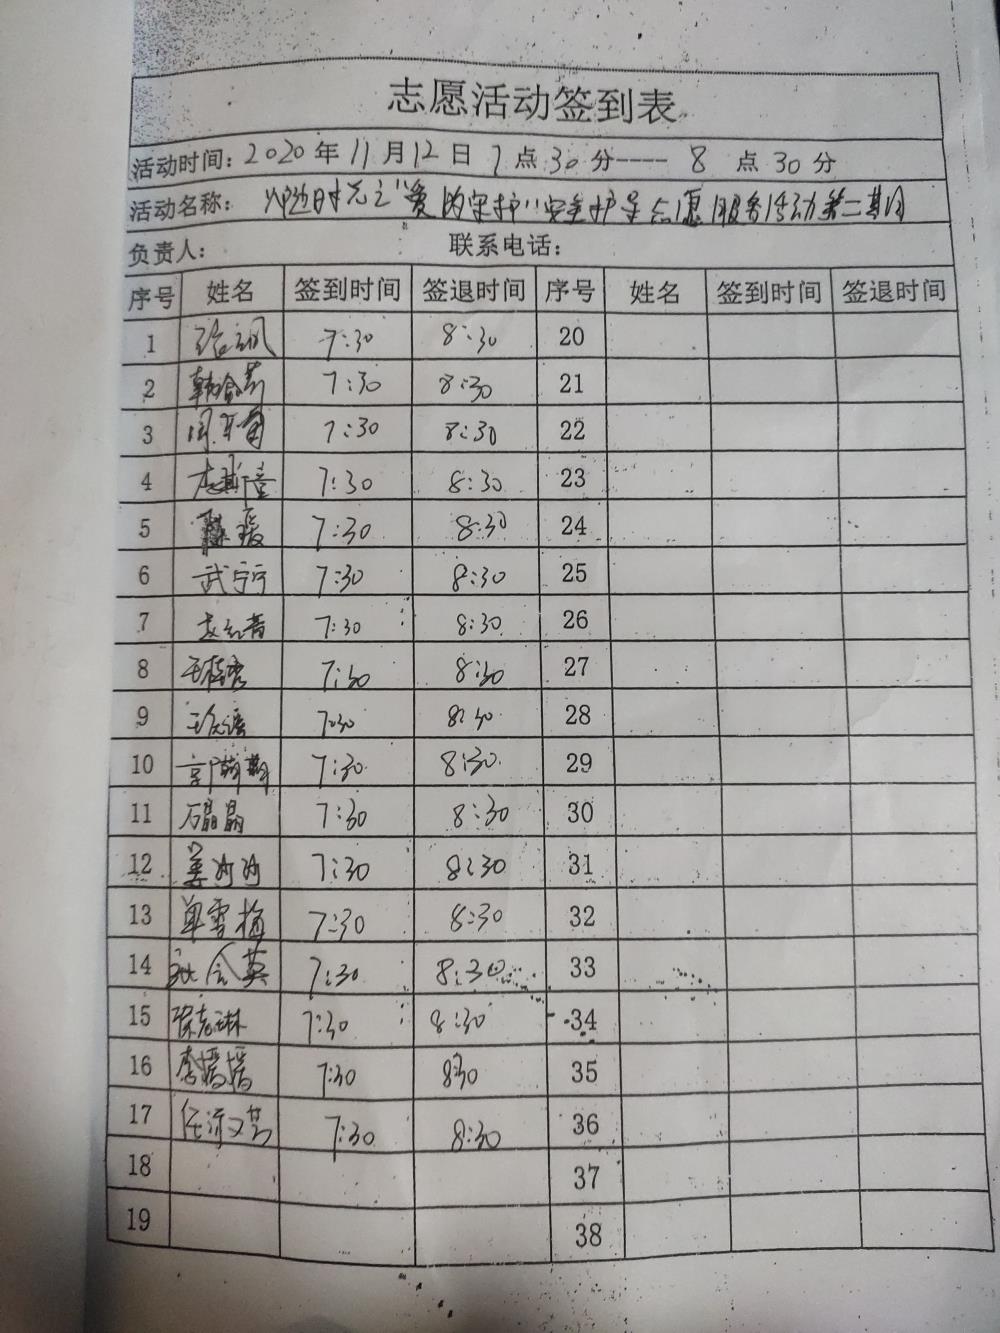 志愿活动签到表
活动时间: 2020年11月12日 7点30分----8点30分
活动名称: 时光之"爱的守护"安全护导志愿服务活动第二期
负责人: 联系电话:
序号 姓名 签到时间 签退时间 序号 姓名 签到时间 签退时间
1 7:30 8:30 20
2 7:30 8:30 21
3 7:30 8:30 22
4 7:30 8:30 23
5 7:30 8:30 24
6 武宁宁 7:30 8:30 25
7 7:30 8:30 26
8 7:30 8:30 27
9 7:30 8:30 28
10 7:30 8:30 29
11 石晶晶 7:30 8:30 30
12 7:30 8:30 31
13 单雪梅 7:30 8:30 32
14 7:30 8:30 33
15 7:30 8:30 34
16 7:30 8:30 35
17 7:30 8:30 36
18 37
19 38